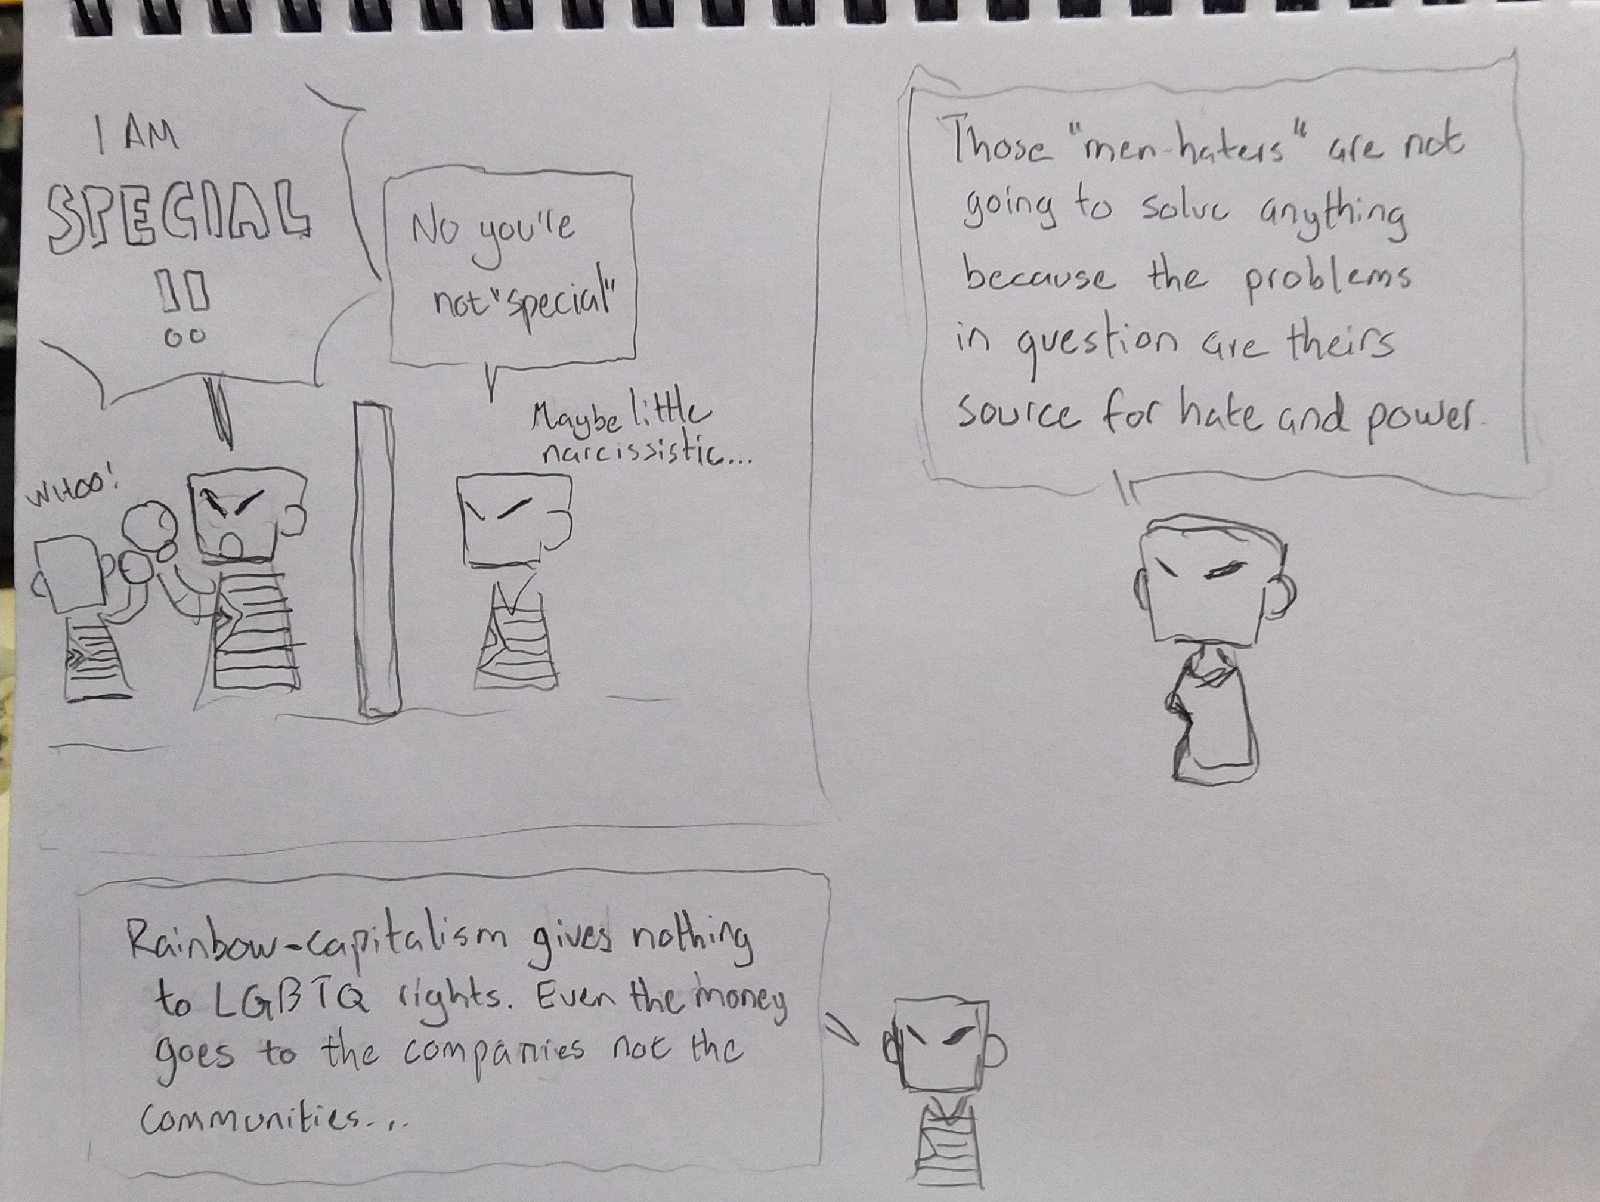 I AM
SPECIAL
!!
No you're
not "special"
Maybe little
narcissistic...
WHOO!
Those "men-haters" are not
going to solve anything
because the problems
in question are theirs
source for hate and power.
Rainbow-capitalism gives nothing
to LGBTQ rights. Even the money
goes to the companies not the
communities...